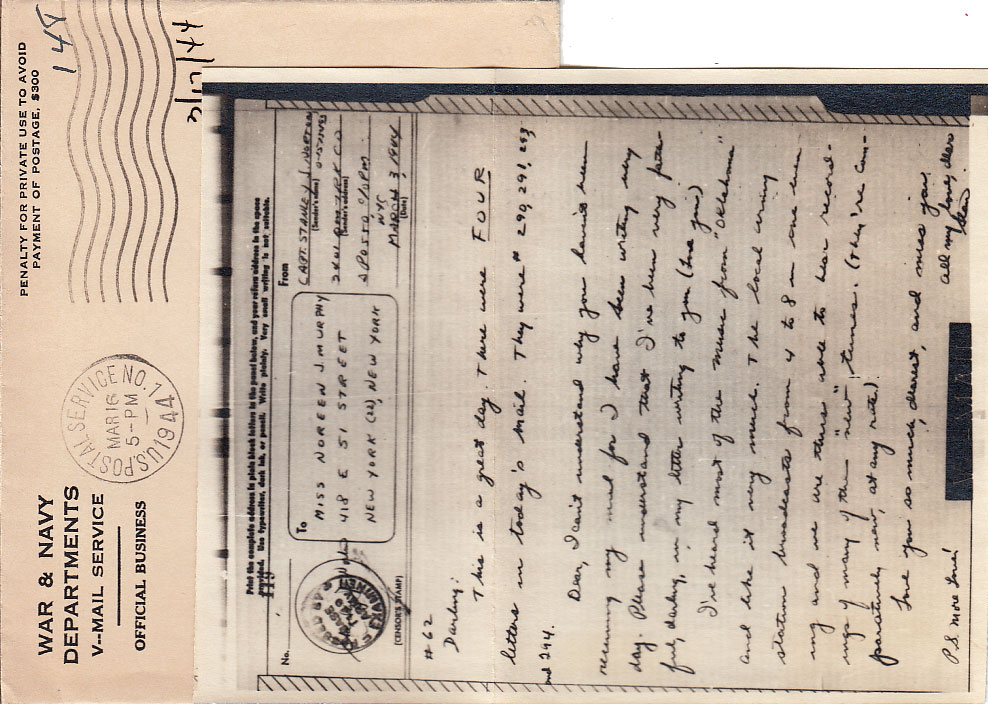 WAR & NAVY
DEPARTMENTS
V-MAIL SERVICE
OFFICIAL BUSINESS
U.S. POSTAL SERVICE NO. 1
MAR 16
5-PM
1944
PENALTY FOR PRIVATE USE TO AVOID
PAYMENT OF POSTAGE, $300
148
3/17/44
Print the complete address in plain block letters in the panel below, and your return address in the space
provided. Use typewriter, dark ink, or pencil. Write plainly. Very small writing is not suitable.
No.
(CENSOR'S STAMP)
To
MISS NOREEN J. MURPHY
418 E 51 STREET
NEW YORK (22), NEW YORK
From
CAPT. STANLEY J. NORTON
(Sender's name)
TRK CO
(Sender's address)
APO 510 % P.M.
NYC
MARCH 3, 1944
(Date)
#62
Darling:
This is a great day. There were FOUR
letters in today's mail. They were # 290, 291, 293
and 294.
Dear, I can't understand why you haven't been
receiving my mail for I have been writing every
day. Please understand that I've been very faith-
ful, darling, in my letter writing to you (love you)
I've heard most of the music from "Oklahoma"
and like it very much. The local army
station broadcasts from 4 to 8 in the even-
ing and we are thus able to hear record-
ings of many of the "new" tunes. (They're com-
paratively new, at any rate.)
Love you so much, dearest, and miss you,
all my love, dear
Stan
P.S. More love!